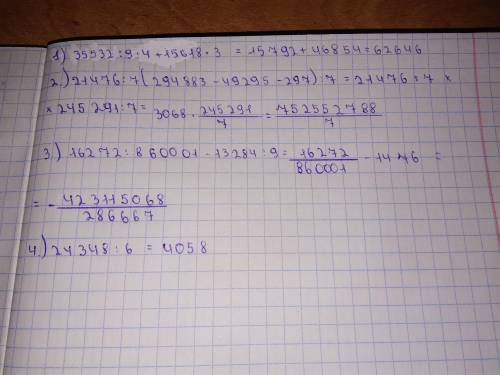 1) 35532:9·4+15618·3 = 15792+46854=62646
2.) 21476:7(294883-49295-297):7=21476:7 ×
× 245291:7= 3068·245291/7 = 752552788/7
3.) 16272:860001-13284:9= 16272/860001 - 1476 =
= - 423115068/286667
4.) 24348:6 = 4058